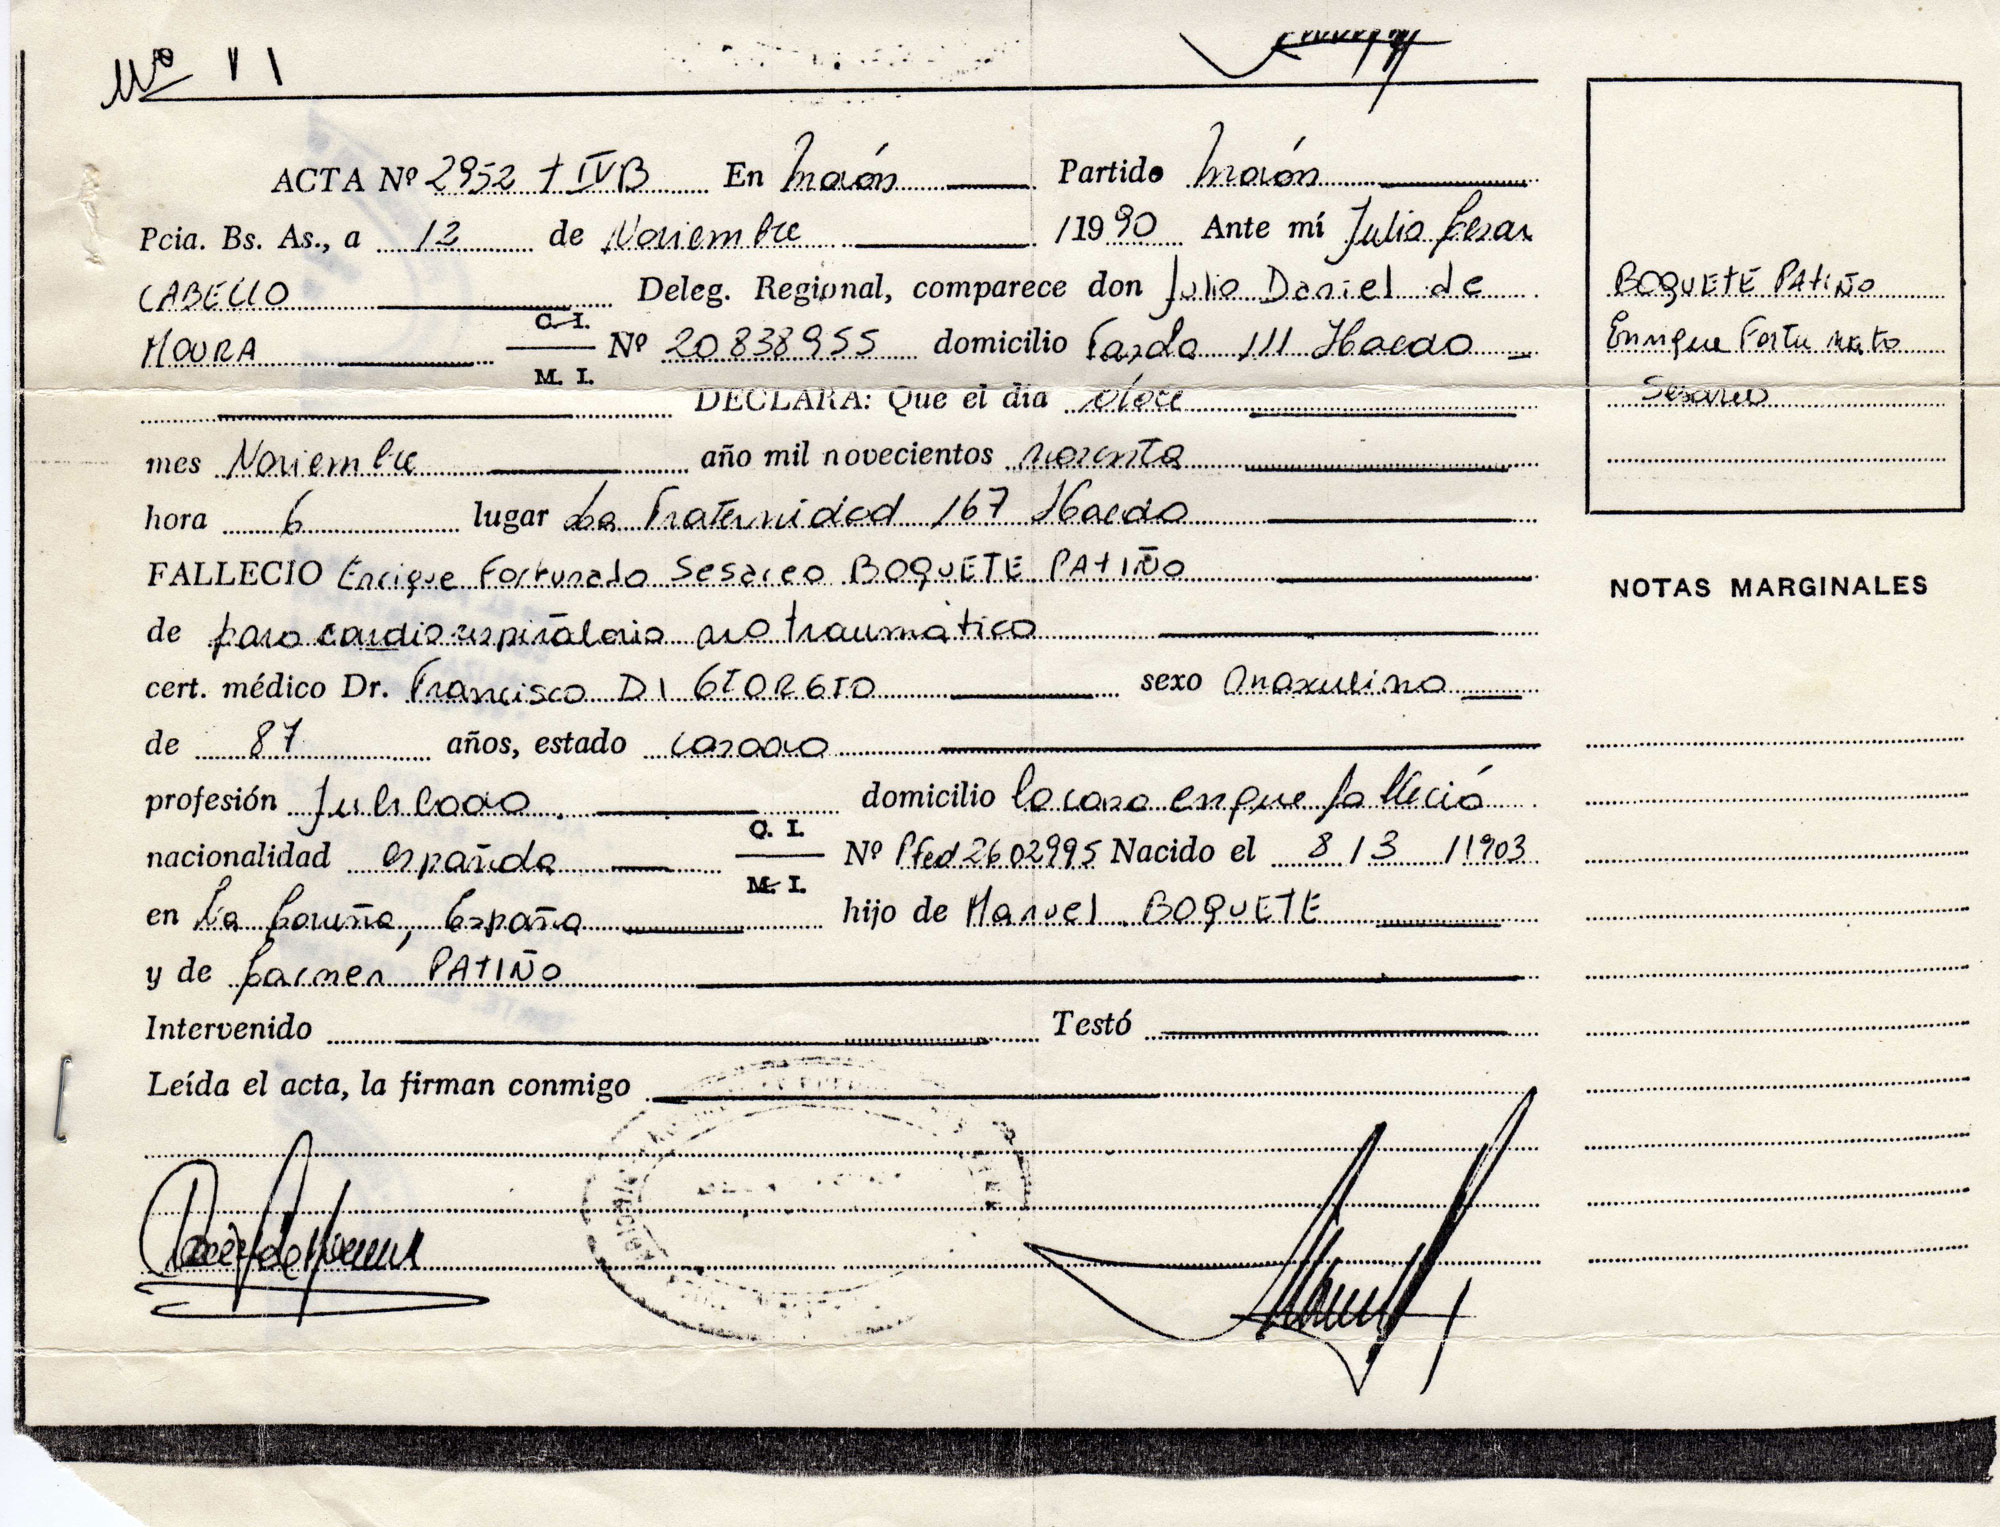 Nº 11
ACTA Nº 2952 t IVB En Morón Partido Morón
Pcia. Bs. As., a 12 de Noviembre /1990 Ante mí Julio Cesar
CABELLO Deleg. Regional, comparece don Julio Daniel de
MOURA C. I. M. I. Nº 20838955 domicilio 111 Haedo
DECLARA: Que el dia doce
mes Noviembre año mil novecientos noventa
hora 6 lugar La Fraternidad 167 Haedo
FALLECIO Enrique Fortunado Sesareo BOQUETE PATIÑO
de paro cardiorespiratorio no traumático
cert. médico Dr. Francisco DI GIORGIO sexo masculino
de 87 años, estado casado
profesión Jubilado domicilio la casa en que falleció
nacionalidad española C. I. M. I. Nº Pfed 2602995 Nacido el 8/3 /1903
en La Coruña, España hijo de Manuel BOQUETE
y de Carmen PATIÑO
Intervenido Testó
Leída el acta, la firman conmigo
BOQUETE PATIÑO
Enrique Fortunato
Sesareo
NOTAS MARGINALES